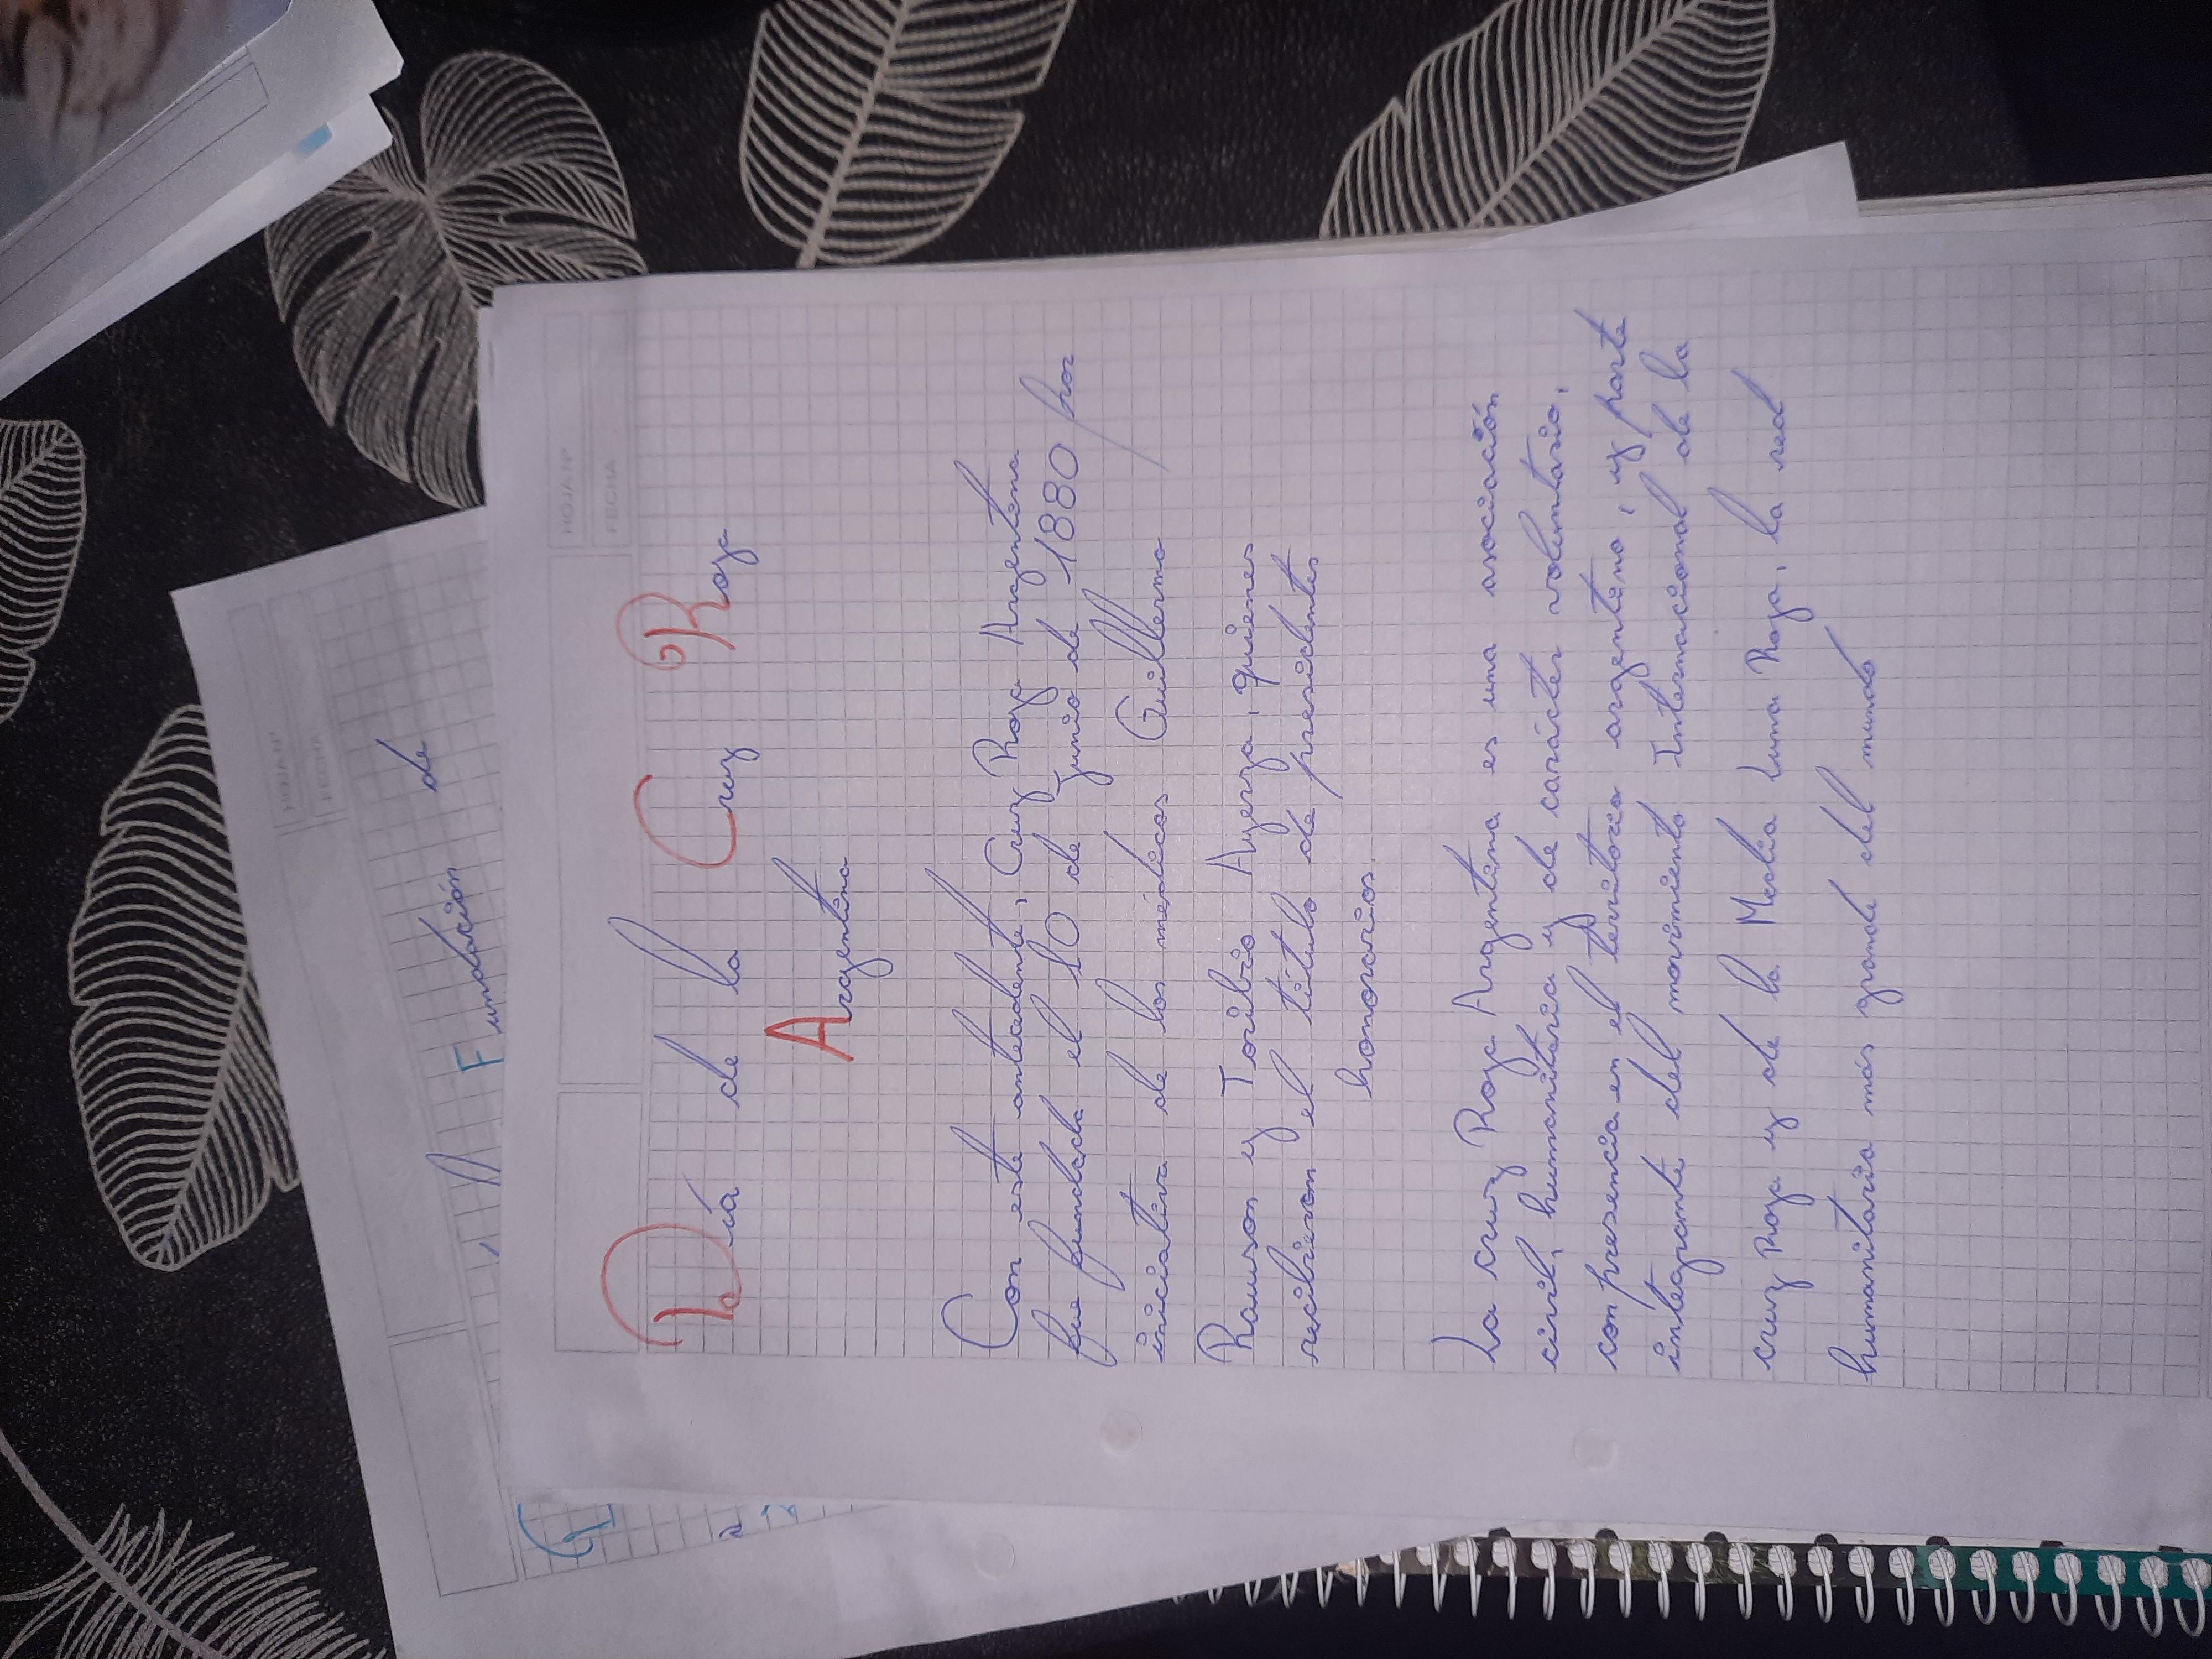 Día de la Cruz Roja
Argentina
Con este antecedente, Cruz Roja Argentina
fue fundada el 10 de Junio de 1880 por
iniciativa de los médicos Guillermo
Rawson y Toribio Ayerza, quienes
recibieron el título de presidentes
honorarios.
La cruz Roja Argentina es una asociación
civil, humanitaria y de carácter voluntario,
con presencia en el territorio argentino, y parte
integrante del movimiento Internacional de la
cruz Roja y de la Media Luna Roja, la red
humanitaria más grande del mundo
HOJA Nº
FECHA
Fundación de
HOJA Nº
FECHA